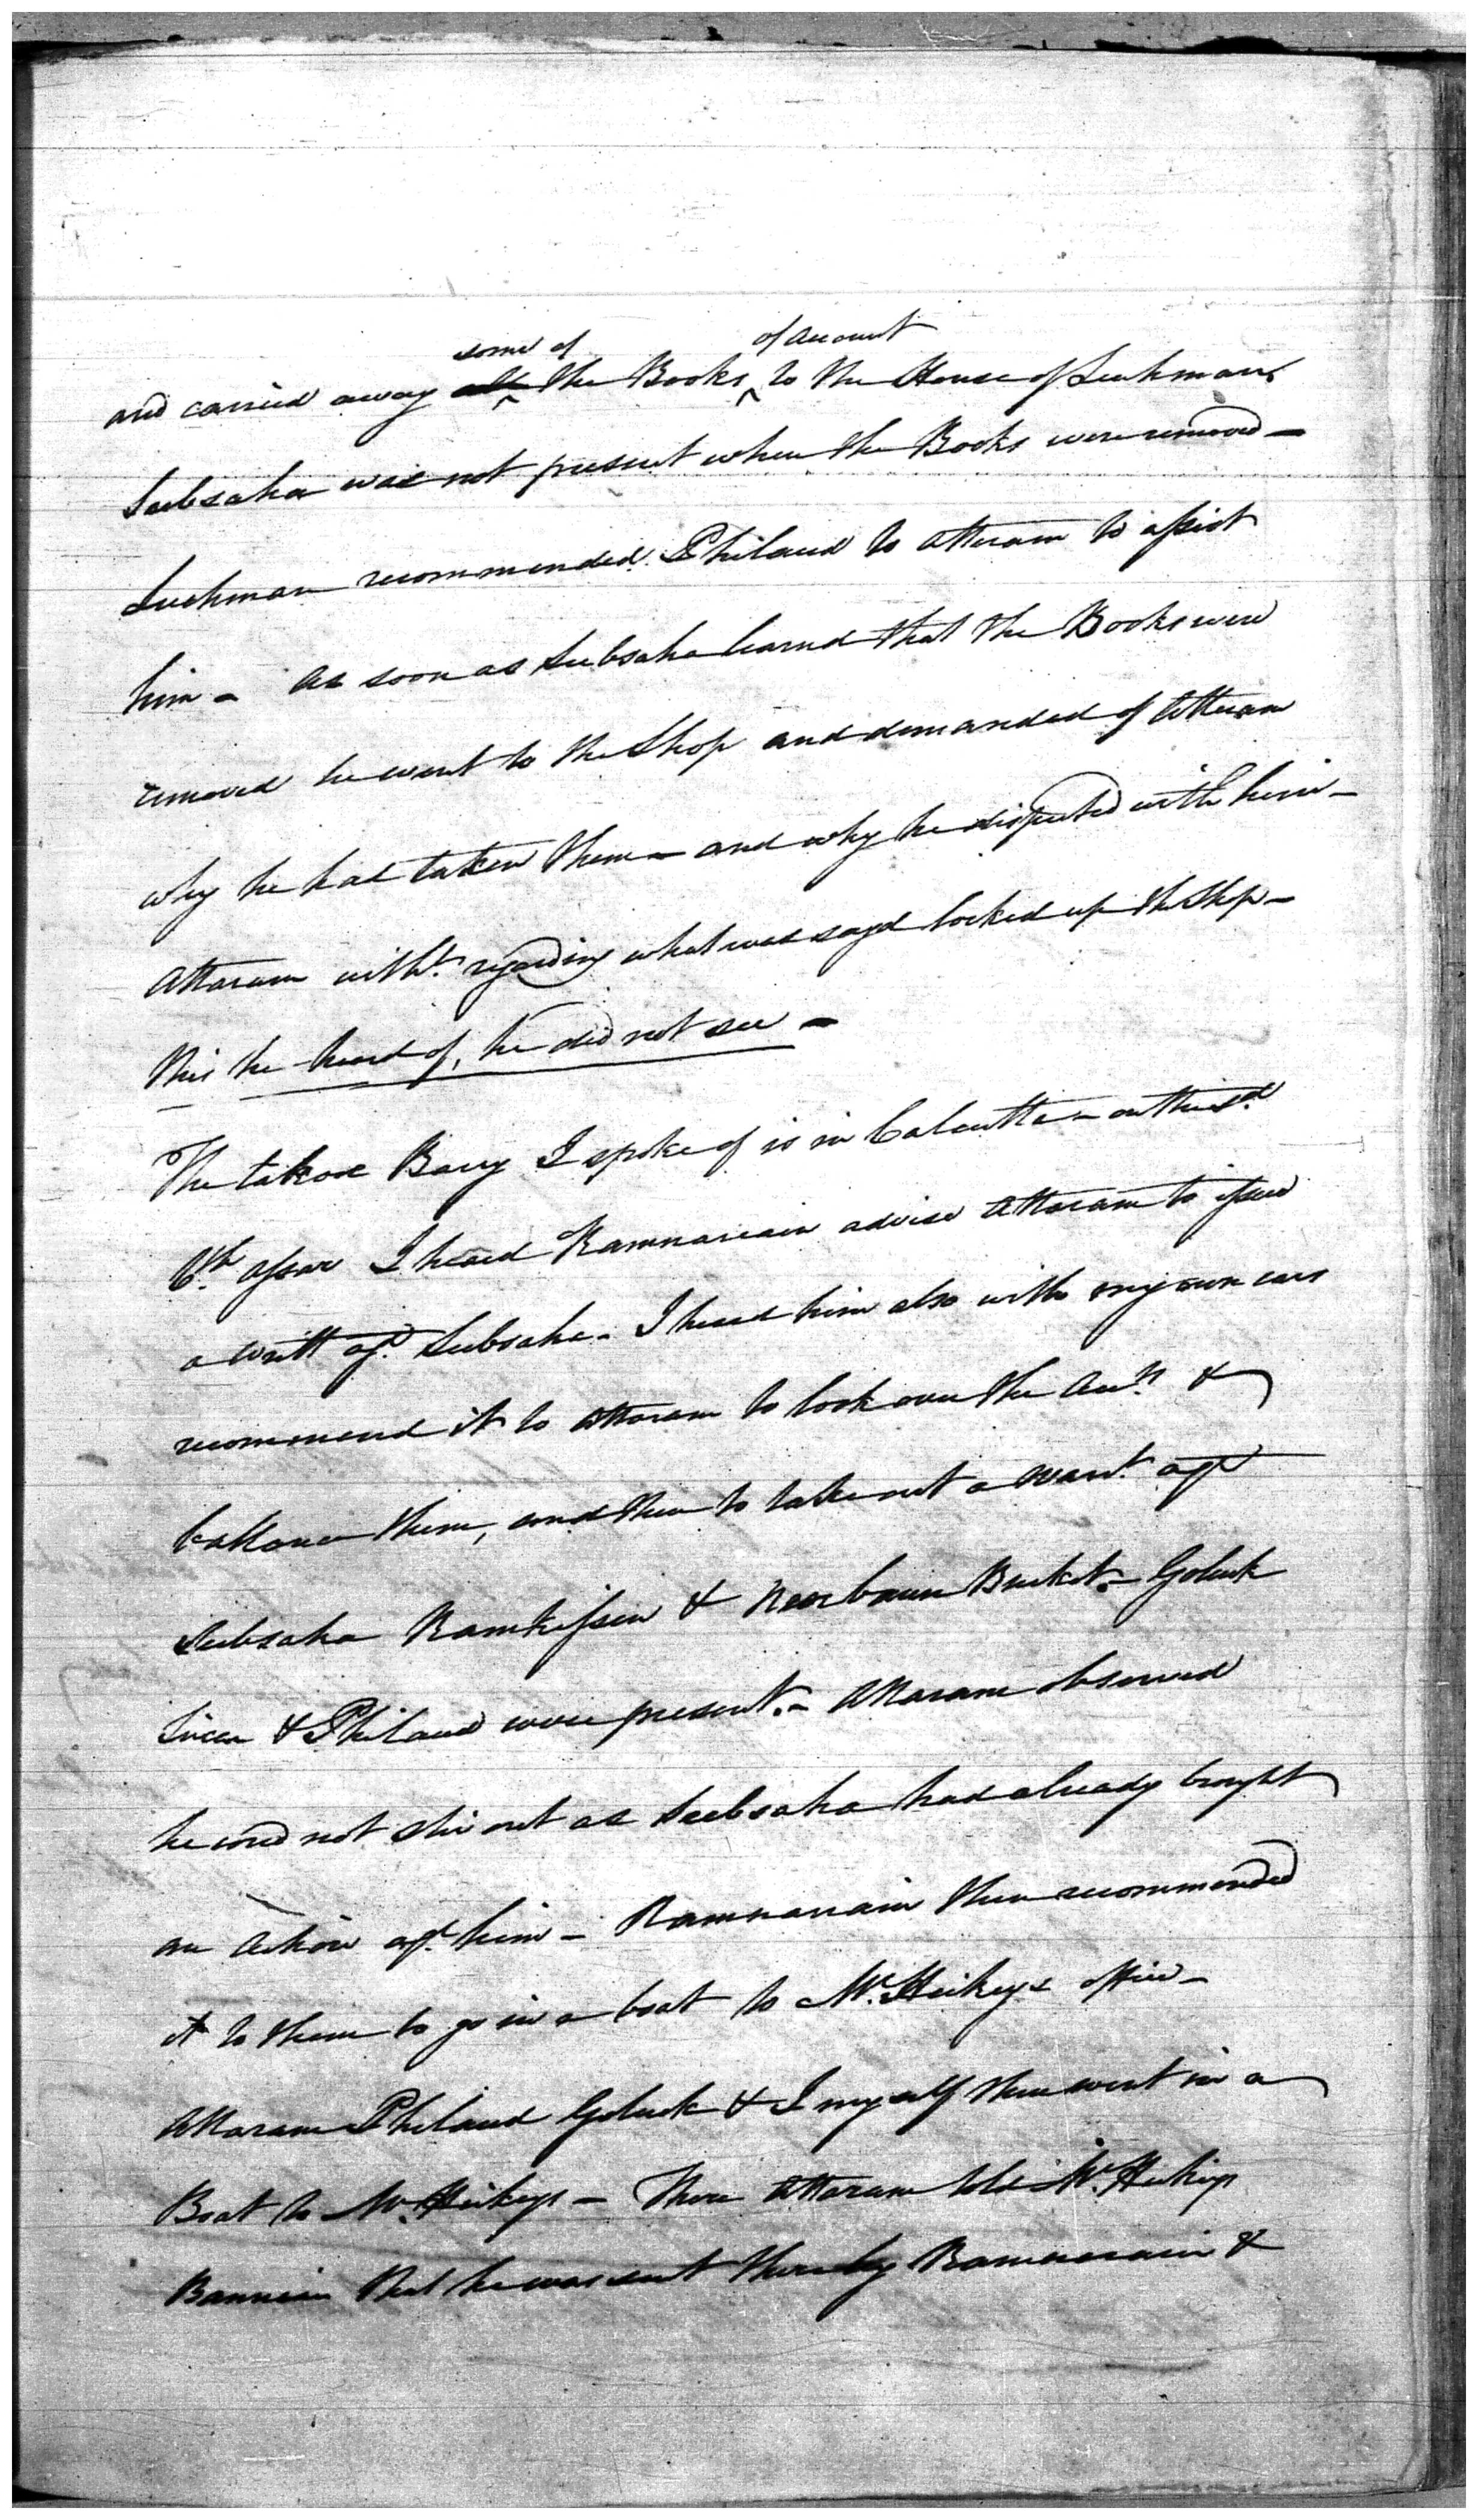 some of of Account
and carried away all the Books to the House of Luchman
Seebsaha was not present when the Books were removed —
Luchman recommended Philaud to Attaram to assist
him — As soon as Seebsaha learnd that the Books were
removed he went to the Shop and demanded of Attaram
why he had taken them — and why he disputed with him —
Attaram witht. regarding what was sayd locked up the Shop —
this he heard of, he did not see —
The takoor Barry I spoke of is in Calcutta — on the sd.
6th. Assar I heard Ramnarain advise Attaram to issue
a Writt agt. Seebsaha — I heard him also with my own ears
recommend it to Attaram to look over the Accts &
ballance them, and then to take out a Warrt. agt
Seebsaha Ramkissen & Neerbaun Bucket — Goluck
Sircar & Philaud were present. — Attaram observed
he coud not stir out as Seebsaha had already brought
an Action agt. him — Ramnarain then recommended
it to them to go in a boat to Mr. Hickeys office —
Attaram Philaud Goluck & I myself then went in a
Boat to Mr. Hickeys — There Attaram told Mr. Hickeys
Bannian that he was sent there by Ramnarain &